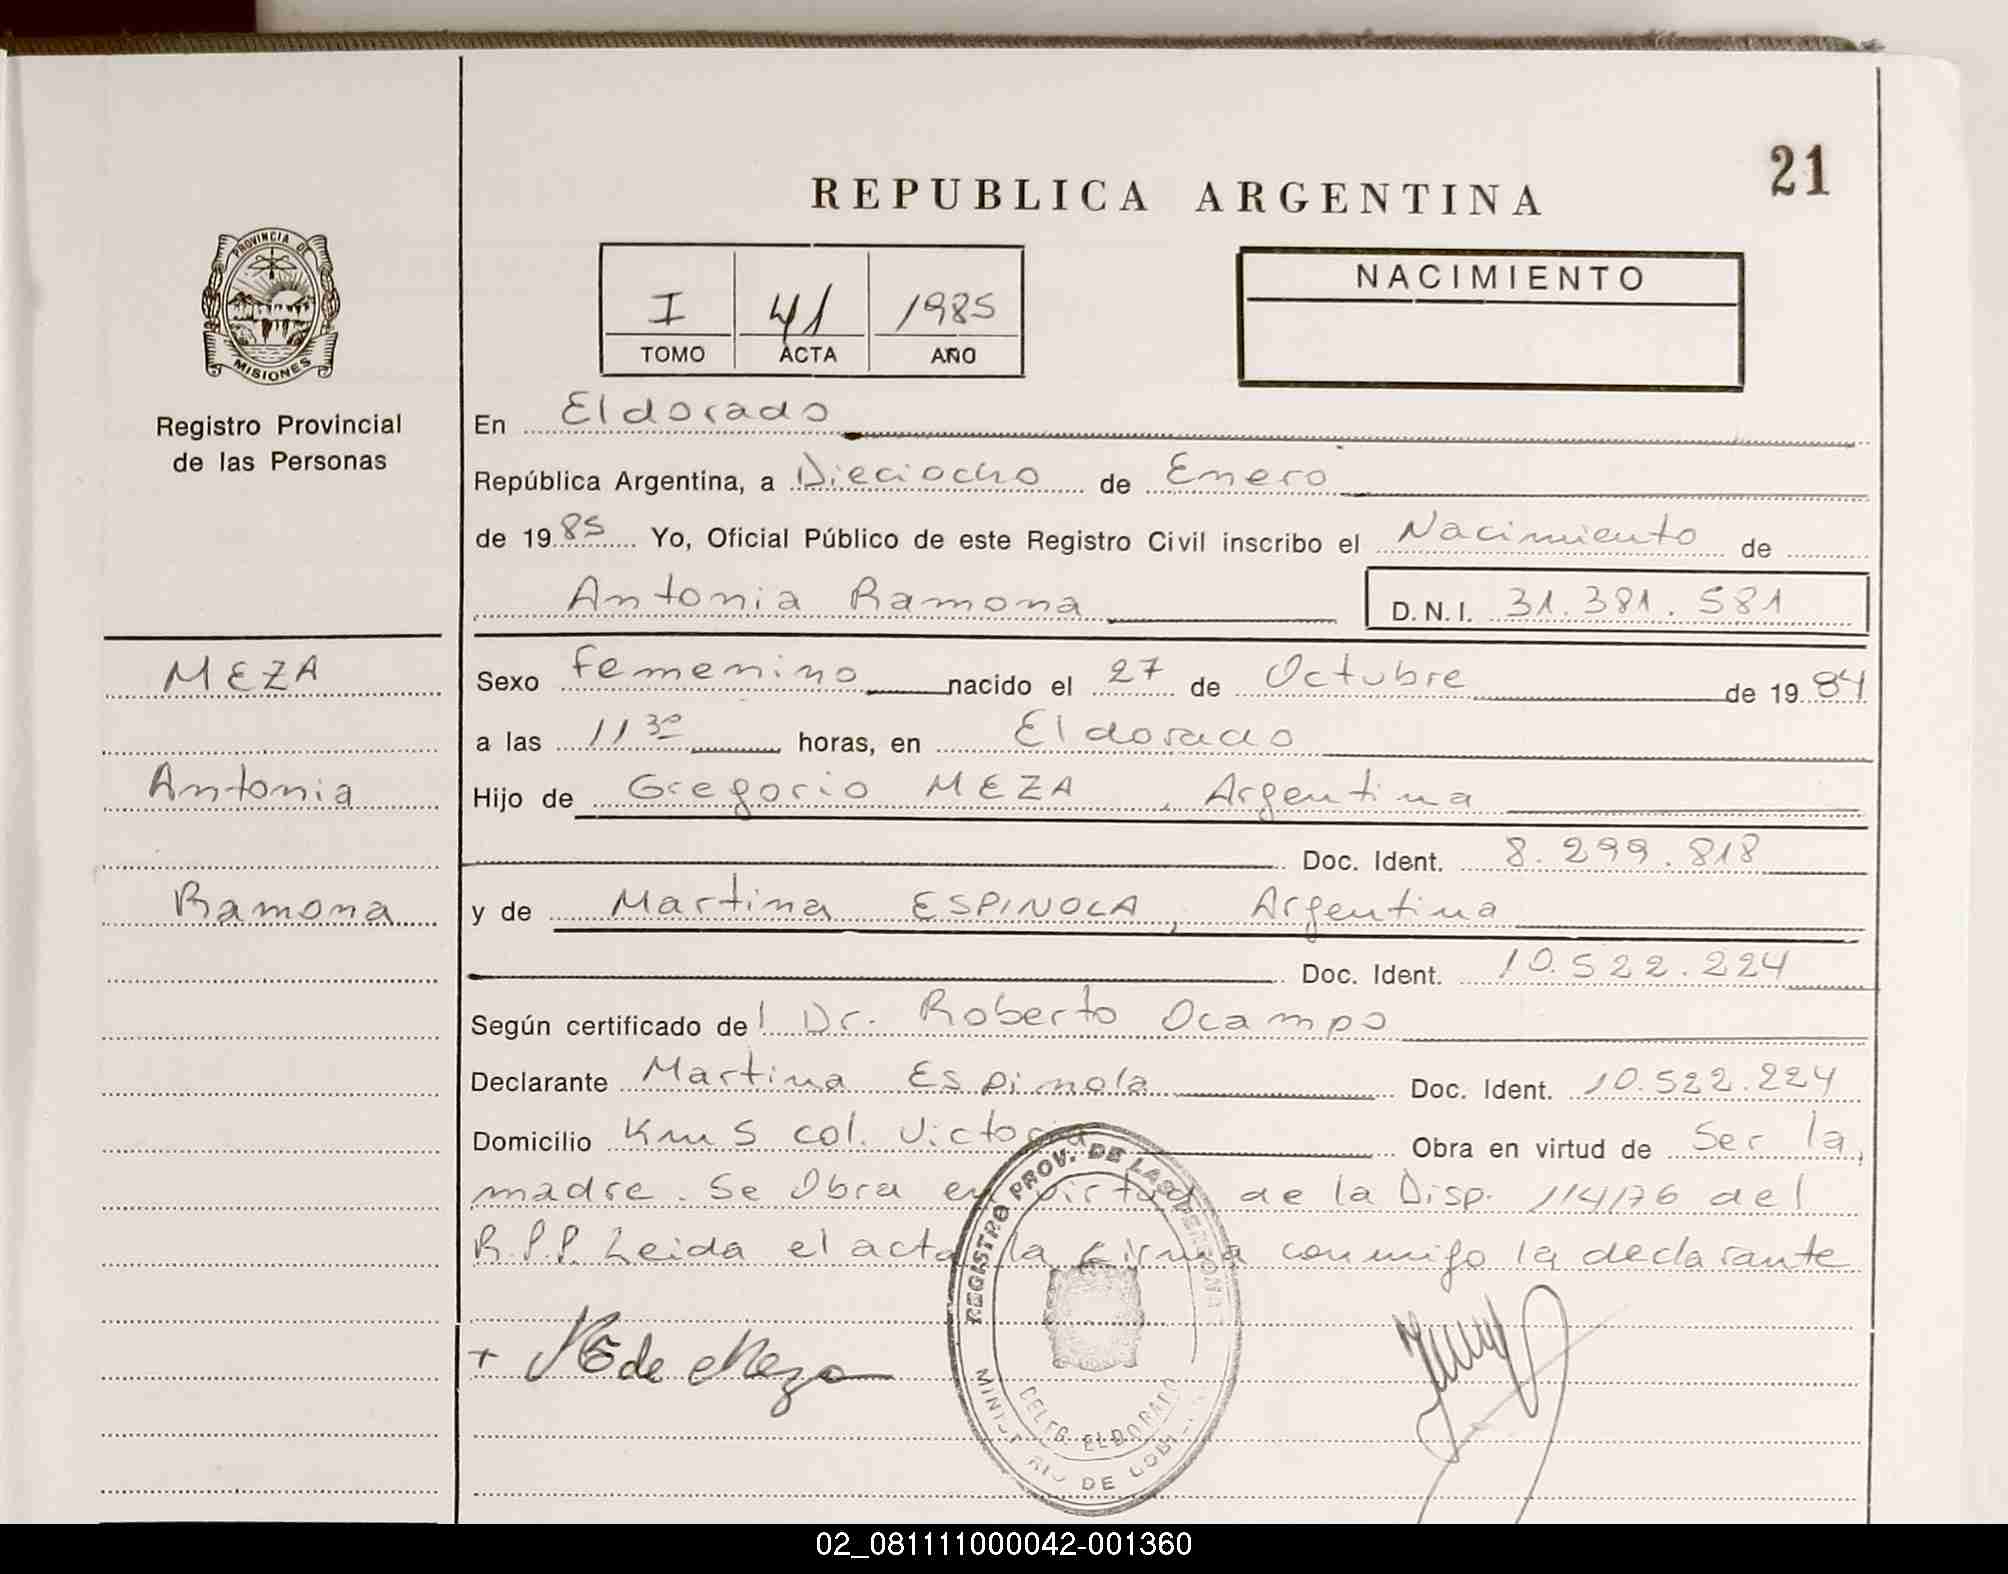 21
REPUBLICA ARGENTINA
PROVINCIA DE
MISIONES
Registro Provincial
de las Personas
I 41 1985
TOMO ACTA AÑO
NACIMIENTO
En Eldorado
República Argentina, a Dieciocho de Enero
de 1985 Yo, Oficial Público de este Registro Civil inscribo el Nacimiento de
Antonia Ramona D.N.I. 31.381.581
MEZA
Antonia
Ramona
Sexo Femenino nacido el 27 de Octubre de 1984
a las 11 30 horas, en Eldorado
Hijo de Gregorio MEZA, Argentina
Doc. Ident. 8.299.818
y de Martina ESPINOLA, Argentina
Doc. Ident. 10.522.224
Según certificado del Dr. Roberto Ocampo
Declarante Martina Espinola Doc. Ident. 10.522.224
Domicilio Km 5 col. Victoria Obra en virtud de Ser la
madre. Se Obra en virtud de la Disp. 114/76 del
R.P.P. Leida el acta la firma conmigo la declarante
+ de Meza
REGISTRO PROV. DE LAS PERSONAS
DELEG. ELDORADO
MINISTERIO DE GOBI
02_081111000042-001360